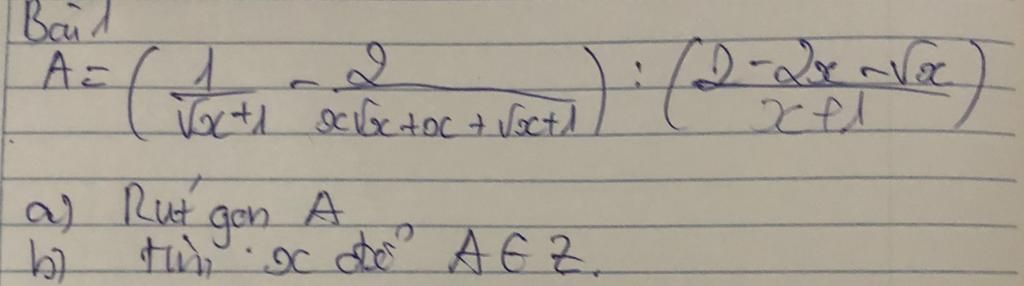 Bài 1
A = (1/(√x+1) - 2/(x√x+x+√x+1)) : ((2-2x-√x)/(x+1))
a) Rút gọn A
b) tìm x để A ∈ Z.